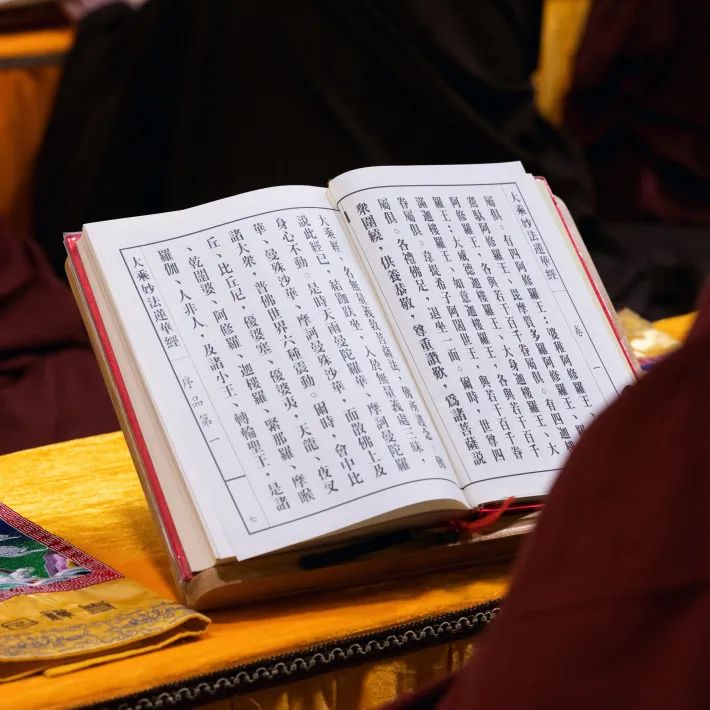 大乘妙法蓮華經 卷一
屬俱。有四阿修羅王、婆稚阿修羅王、
騫馱阿修羅王、毘摩質多羅阿修羅王、
阿修羅王、各與若干百千眷屬俱。有四迦
羅王：大威德迦樓羅王、大身迦樓羅王、大
滿迦樓羅王、如意迦樓羅王、各與若干百千眷
屬俱。韋提希子阿闍世王，與若干百千眷
屬俱。各禮佛足，退坐一面。爾時，世尊四
眾圍繞，供養恭敬，尊重讚歎，為諸菩薩說
大乘經，名無量義教菩薩法，佛所護念。佛
說此經已，結跏趺坐，入於無量義處三昧，
身心不動。是時天雨曼陀羅華、摩訶曼陀羅
華、曼殊沙華、摩訶曼殊沙華，而散佛上及
諸大眾，普佛世界六種震動。爾時，會中比
丘、比丘尼、優婆塞、優婆夷，天龍、夜叉
、乾闥婆、阿修羅、迦樓羅、緊那羅、摩睺
羅伽、人非人，及諸小王、轉輪聖王，是諸
大乘妙法蓮華經 序品第一 七